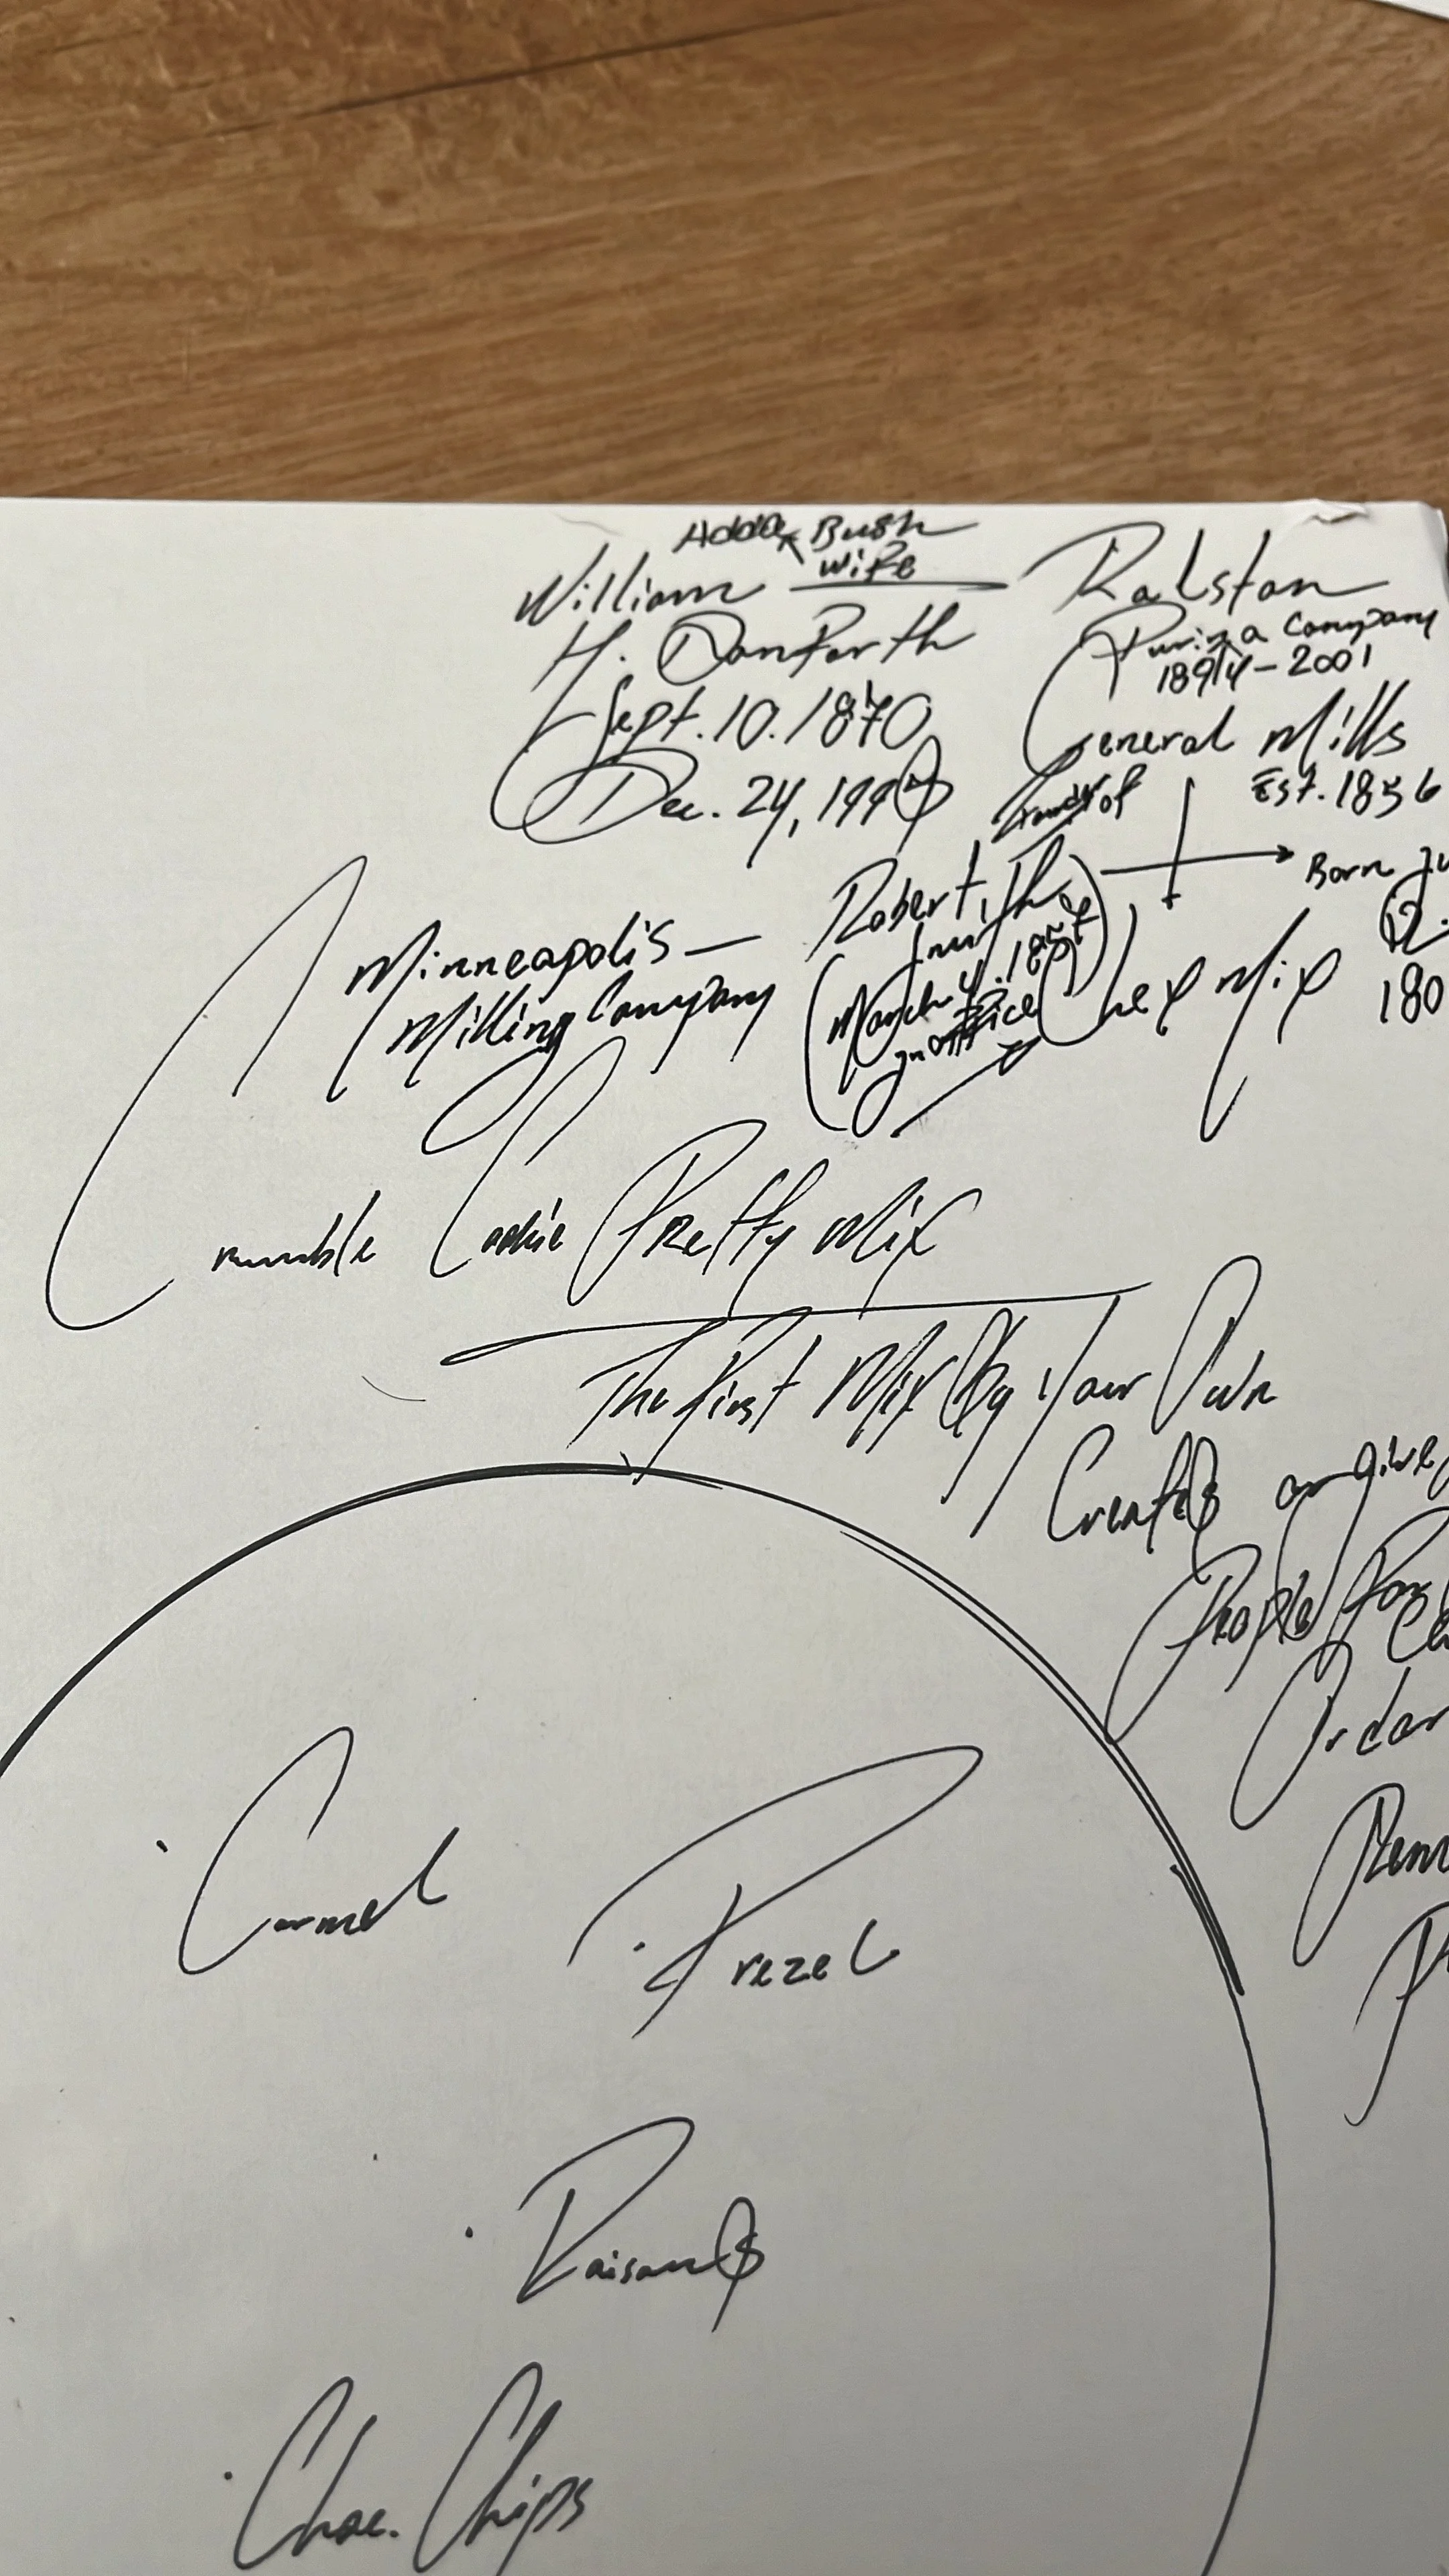 Bush
wife
William
H. Danforth
Sept. 10. 1870
Dec. 24, 199
Ralston
Purina Company
1894 - 2001
General Mills
Est. 1856
Born
Robert
March 4. 1857
in office
12.
180
Minneapolis —
Milling Company
Chex Mix
Crumble Cookie Pretty Mix
The First Mix by Your Own
Create or give
People for
Order
Carmel
Prezel
Raisons
Choc. Chips